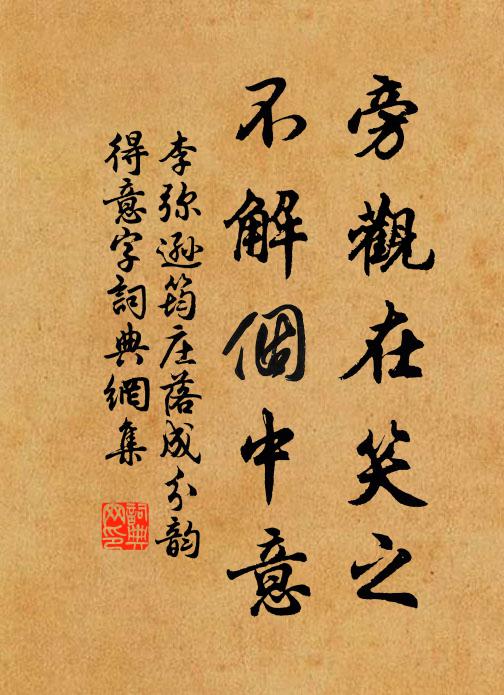 旁觀在笑之
不解個中意
李弥遜筠庄落成分韵
得意字詞典網集
詞典
网印